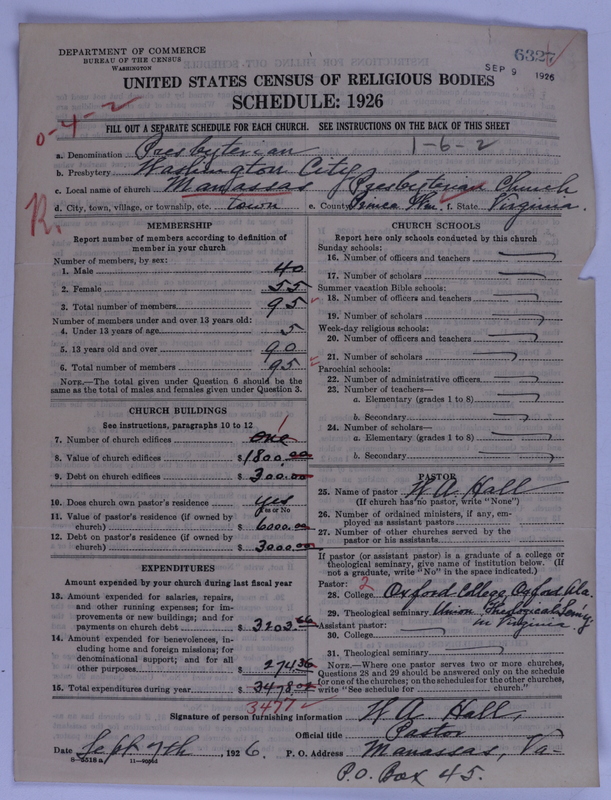 DEPARTMENT OF COMMERCE
BUREAU OF THE CENSUS
WASHINGTON
SEP 9 1926
UNITED STATES CENSUS OF RELIGIOUS BODIES
SCHEDULE: 1926
0-4-2
FILL OUT A SEPARATE SCHEDULE FOR EACH CHURCH. SEE INSTRUCTIONS ON THE BACK OF THIS SHEET
1-6-2
a. Denomination Presbyterian
b. Presbytery Washington City
c. Local name of church Manassas Presbyterian Church
R.
d. City, town, village, or township, etc. town e. County Prince Wm. f. State Virginia.
MEMBERSHIP
Report number of members according to definition of
member in your church
Number of members, by sex:
1. Male 40
2. Female 55
3. Total number of members 95
Number of members under and over 13 years old:
4. Under 13 years of age 5
5. 13 years old and over 90
6. Total number of members 95
NOTE.—The total given under Question 6 should be
the same as the total of males and females given under Question 3.
CHURCH BUILDINGS
See instructions, paragraphs 10 to 12
7. Number of church edifices one 1
8. Value of church edifices $1800.00
9. Debt on church edifices $300.00
10. Does church own pastor's residence yes
Yes or No
11. Value of pastor's residence (if owned by
church) $6000.00
12. Debt on pastor's residence (if owned by
church) $3000.00
EXPENDITURES
Amount expended by your church during last fiscal year
13. Amount expended for salaries, repairs,
and other running expenses; for im-
provements or new buildings; and for
payments on church debt $3203.66
14. Amount expended for benevolences, in-
cluding home and foreign missions; for
denominational support; and for all
other purposes $274.36
15. Total expenditures during year $3478.02
3477
CHURCH SCHOOLS
Report here only schools conducted by this church
Sunday schools:
16. Number of officers and teachers
17. Number of scholars
Summer vacation Bible schools:
18. Number of officers and teachers
19. Number of scholars
Week-day religious schools:
20. Number of officers and teachers
21. Number of scholars
Parochial schools:
22. Number of administrative officers
23. Number of teachers—
a. Elementary (grades 1 to 8)
b. Secondary
24. Number of scholars—
a. Elementary (grades 1 to 8)
b. Secondary
PASTOR
25. Name of pastor W. A. Hall
(If church has no pastor, write "None")
26. Number of ordained ministers, if any, em-
ployed as assistant pastors
27. Number of other churches served by the
pastor or his assistants
If pastor (or assistant pastor) is a graduate of a college or
theological seminary, give name of institution below. (If
not a graduate, write "No" in the space indicated.)
Pastor: 2
28. College Oxford College, Oxford Ala.
29. Theological seminary Union Theological Seminy
in Virginia
Assistant pastor:
30. College
31. Theological seminary
NOTE.—Where one pastor serves two or more churches,
Questions 28 and 29 should be answered only on the schedule
for one of the churches; on the schedules for the other churches,
write "See schedule for church."
Signature of person furnishing information W. A. Hall,
Official title Pastor
Date Sept 7th, 1926. P. O. Address Manassas, Va-
8-5518a
P.O. Box 45.